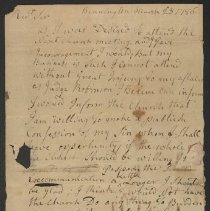 Bennington March 23 1786
Revd Sir
I was Desired to attend the
Church meeting and gave
Incouragement I would but my
Business is such I cannot attend
without Great Injury to my affairs
as Judge Robinson I beleive can inform
I would Inform the Church that
I am willing to make a publick
Confession of my Sin when I shall
have oppertunity if the whole
the Church should be willing to
the
Excommunication I should
be Glad I think
the Church Do and trying to